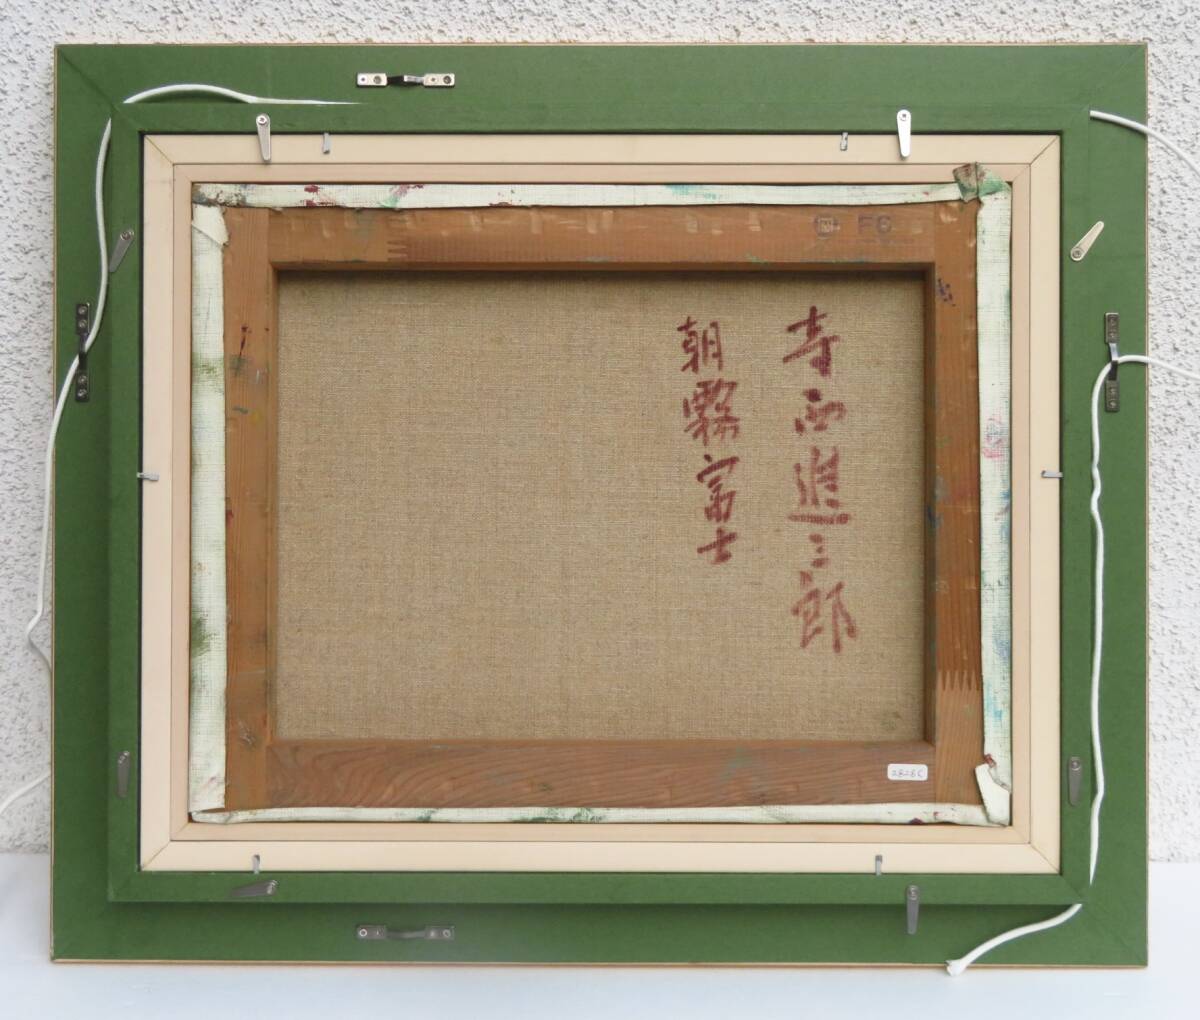 寺西進三郎
朝霧富士
F6
2828C